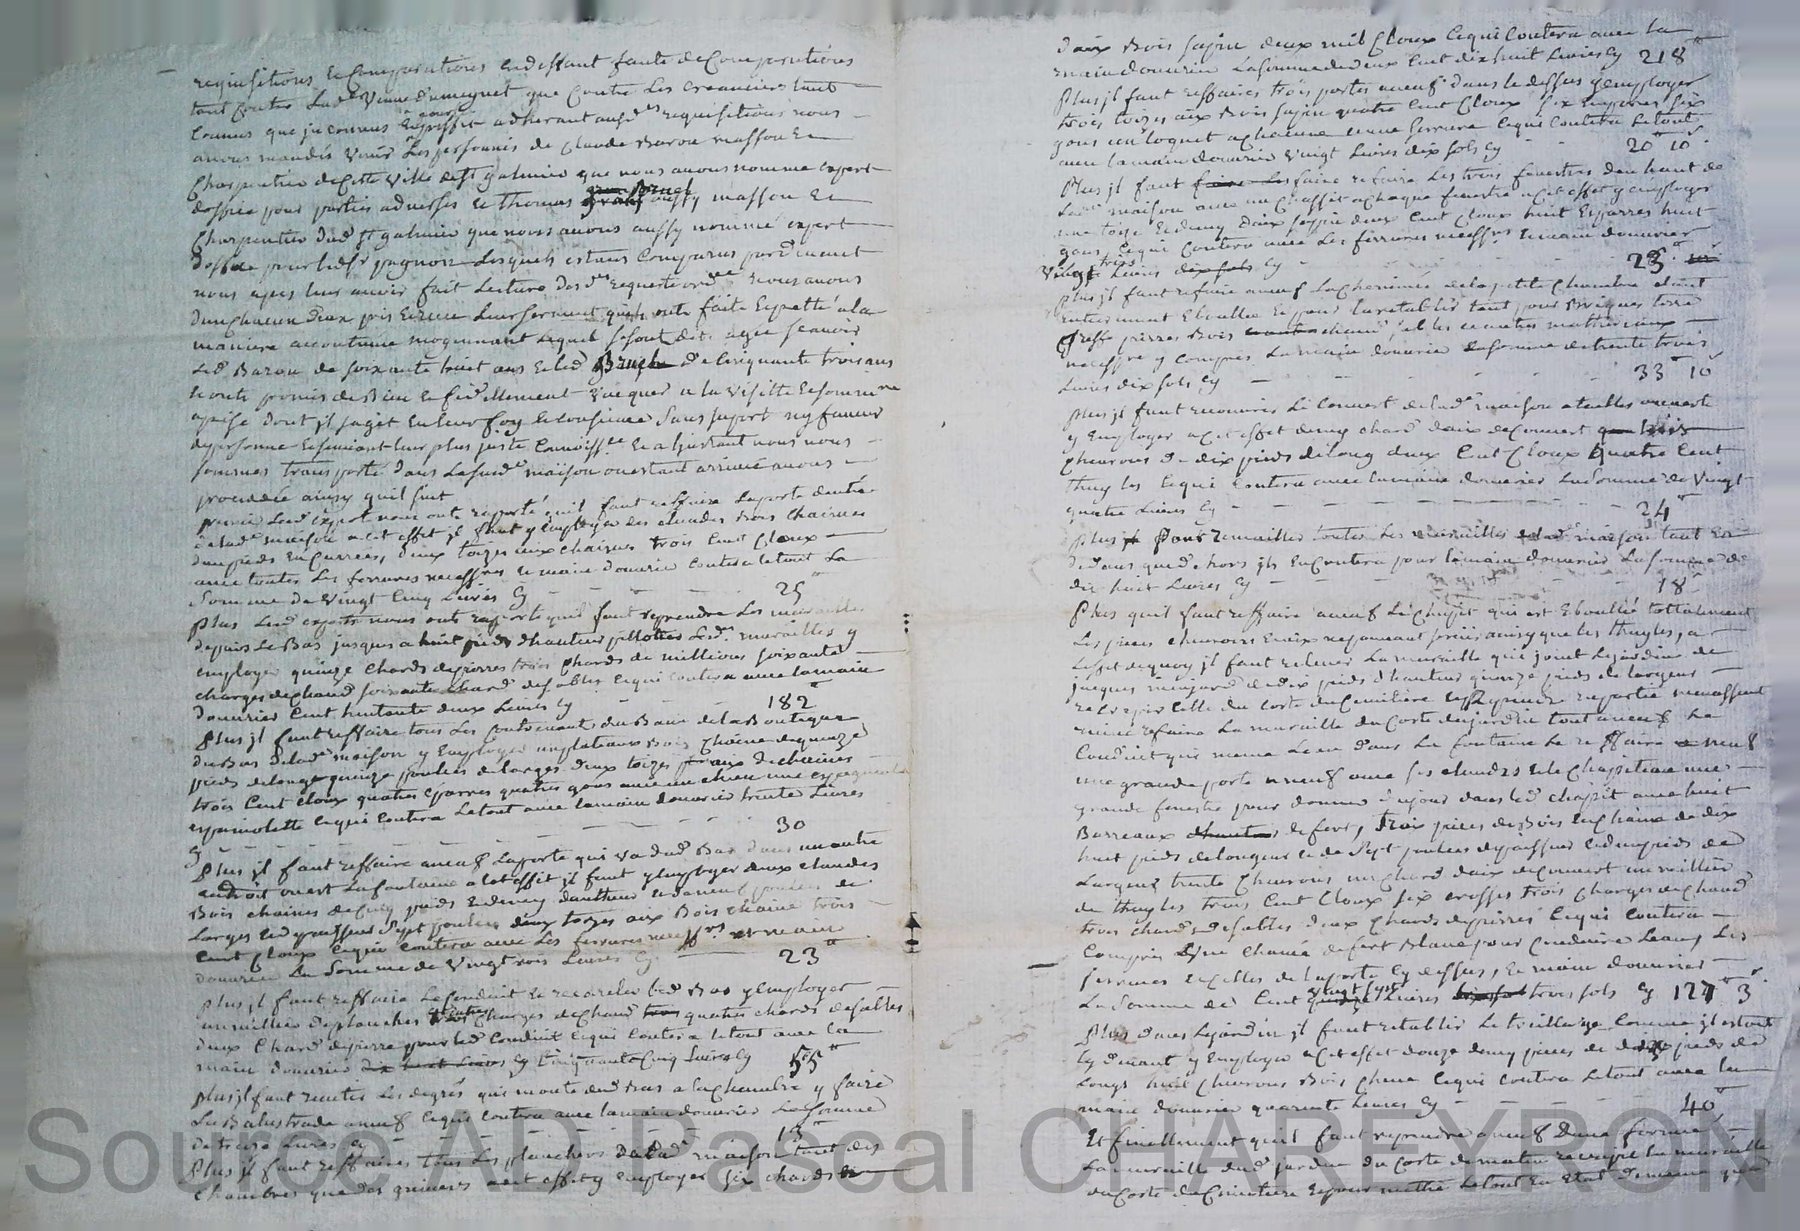 requisitions & Comparutions en deffaut faute de Comparutions
tant contre Lad.e Veuve que Contre Les Creanciers tant
Connus que inconnus adherant ausd.es requisitions nous
avons mandés Venir Les personnes de Claude Baron masson &
Charpentier de Cette Ville de St galmier que nous avons nommé expert
doffice pour parties adverses & thomas Bruel aussy masson &
Charpentier dud. St galmier que nous avons aussy nommé expert
doffice pour Led. Lesquels estant Comparus pard.evant
nous apres leur avoir fait Lecture desd.es requeste ord.ce nous avons
dun chacun deux pris & receu Leur serment quils onts faits & presté a la
maniere accoutumé moyennant Lequel se sont dits agés scavoir
Led. Baron de soixante huit ans & led. Bruel de Cinquante trois ans
& onts promis de Bien & fidellement vacquer a la Visitte & estima.on
a prise dont il sagit en Leur foy & Consience sans suport ny faveur
de personne & suivant Leur plus juste Connoiss.ce & a Linstant nous nous
sommes transporté dans Lasusd.e maison ou estant arrivé avons
procedée ainsy quil suit
premie Lesd. experts nous onts raporté quil faut reffaire La porte dentrée
de lad.e maison a cet effet il faut y employer des eluudes Bois Chaines
dun pieds en Carrées, deux toizes aix chaines trois Cent Cloux
avec toutes Les ferrures necess.res & main douvrier Coutera le tout La
Somme de Vingt Cinq Livres Cy 25
Plus Lesd. experts nous onts raporté quil faut reprendre Les murailles
depuis Le Bas jusques a huit pieds dhauteur Lesd. murailles y
employer quinze Chards de pierres trois Chards de millions soixante
charges de Chaud soixante Chard de sables Ce qui Coutera avec la main
douvrier Cent huitante deux Livres Cy 182
Plus il faut reffaire tous Les Contrevents du Banc de la Boutique
du Bas de lad. maison y Employer un plateaux Bois Chaine de quinze
pieds de longs quinze poulces de larges deux toizes aix de chaines
trois Cent Cloux quatres eparres quatres gons avec un chien une
espagnolette Ce qui Coutera Le tout avec la main douvrier trente Livres
Cy 30
Plus il faut reffaire aneuf La porte qui va dud. Bas dans un autre
endroit ou est La fontaine a Cet effet il faut y Employer deux eluudes
Bois chaines de Cinq pieds & demy dauteur & de neuf poulces de
Larges & de grosseur Sept poulces deux toizes aix Bois chaine trois
Cent Cloux Ce qui Coutera avec Les ferrures necess.res & main
douvrier La Somme de Vingt trois Livres Cy 23
Plus il faut reffaire Le Conduit & Led. Bas y Employer
un millier de planches quatres Charges de Chaud quatres chards de sables
deux Chard de pierre pour led. Conduit Ce qui Coutera le tout avec la
main douvrier Cinquante Cinq Livres Cy 55
Plus il faut remetre Les degrés qui monte dud. Bas a la Chambre y faire
La Balustrade aneuf Ce qui Coutera avec la main douvrier La Somme
de treize Livres Cy 13
Plus il faut reffaires tous Les planchers de lad. maison tant des
Chambres que des greniers a cet effet y employer six chards
daix Bois sapin deux mil Cloux Ce qui Coutera avec la
main douvrier La Somme de deux Cent dix huit Livres Cy 218
Plus il faut reffaires trois portes aneuf dans le dessus y employer
trois toizes aix Bois sapin quatre Cent Cloux six Emparres six
gons un loquet a chacune & une serrure Ce qui Coutera Le tout
avec la main douvrier Vingt Livres dix sols Cy 20 10
Plus il faut faire refaire Les trois fenestres den haut de
Lad. maison avec un Chassit a chaque fenestre a cet effet y employer
une toize & demy daix sappin deux Cent Cloux huit Emparres huit
gons Ce qui Coutera avec Les ferrures necess.res & main douvrier
Vingt trois Livres Cy 23
Plus il faut refaire aneuf La Cheminée de la petite Chambre estant
entierement Eboullée & pour La retablir tant pour Briques terre
greffe pierres Bois chaud sables & autres matheriaux
necess.re y Compris La main douvrier La Somme de trente trois
Livres dix sols Cy 33 10
Plus il faut recouvrir Le Couvert de lad.e maison a tuilles ouverte
y Employer a Cet effet demy chard daix de Couvert
Cheuvrons de dix pieds de long deux Cent Cloux quatre Cent
thuylles Ce qui Coutera avec la main douvrier La Somme de Vingt
quatre Livres Cy 24
Plus pour remailler toutes Les murailles de lad.e maison tant en
dedans que dehors il En Coutera pour la main douvrier La Somme de
dix huit Livres Cy 18
Plus quil faut reffaire aneuf Le Chapit qui est Eboullée tottalement
Les pieces cheuvrons & aix ainsy que les thuyles, a
Leffet de quoy il faut relever La muraille qui joint Le jardin de
jacques de dix pieds dhauteur quinze pieds de largeur
Celle du Coste du Cimitiere repartie menassent
ruine refaire La muraille du Coste du jardin tout aneuf Le
Conduit qui mene Leau dans La fontaine Le reffaire a neuf
une grande porte a neuf avec ses eluudes & le Chapiteau une
grande fenestre pour donner du jour dans led. chapit avec huit
Barreaux de fert, trois pieces de Bois En Chaine de dix
huit pieds de longeur & de Sept poulces depaisseur & dun pieds de
Largeur trente Cheuvrons un Chard daix de Couvert un millier
de thuyles trois Cent Cloux six crosses trois Charges de Chaud
trois chards de sables deux Chards de pierre Ce qui Coutera
Compris Une Chanée de fert Blanc pour Conduire Leau, Les
ferrures & Celles de la porte Cy dessus, & main douvrier
La Somme de Cent vingt sept Livres trois sols Cy 127 3
Plus dans Le jardin il faut retablir Le treillage Comme il estoit
Cy devant y Employer a Cet effet douze demy pieces de douze pieds de
Longs huit Cheuvrons Bois Chene Ce qui Coutera Le tout avec la
main douvrier quarente Livres Cy 40
Et finallement quil faut reprendre aneuf dune forme
La muraille dud. jardin du Coste de matin recrepir La muraille
du Coste du Cimitiere & pour mettre Le tout En Etat de mesme que
Source AD Pascal CHAREYRON